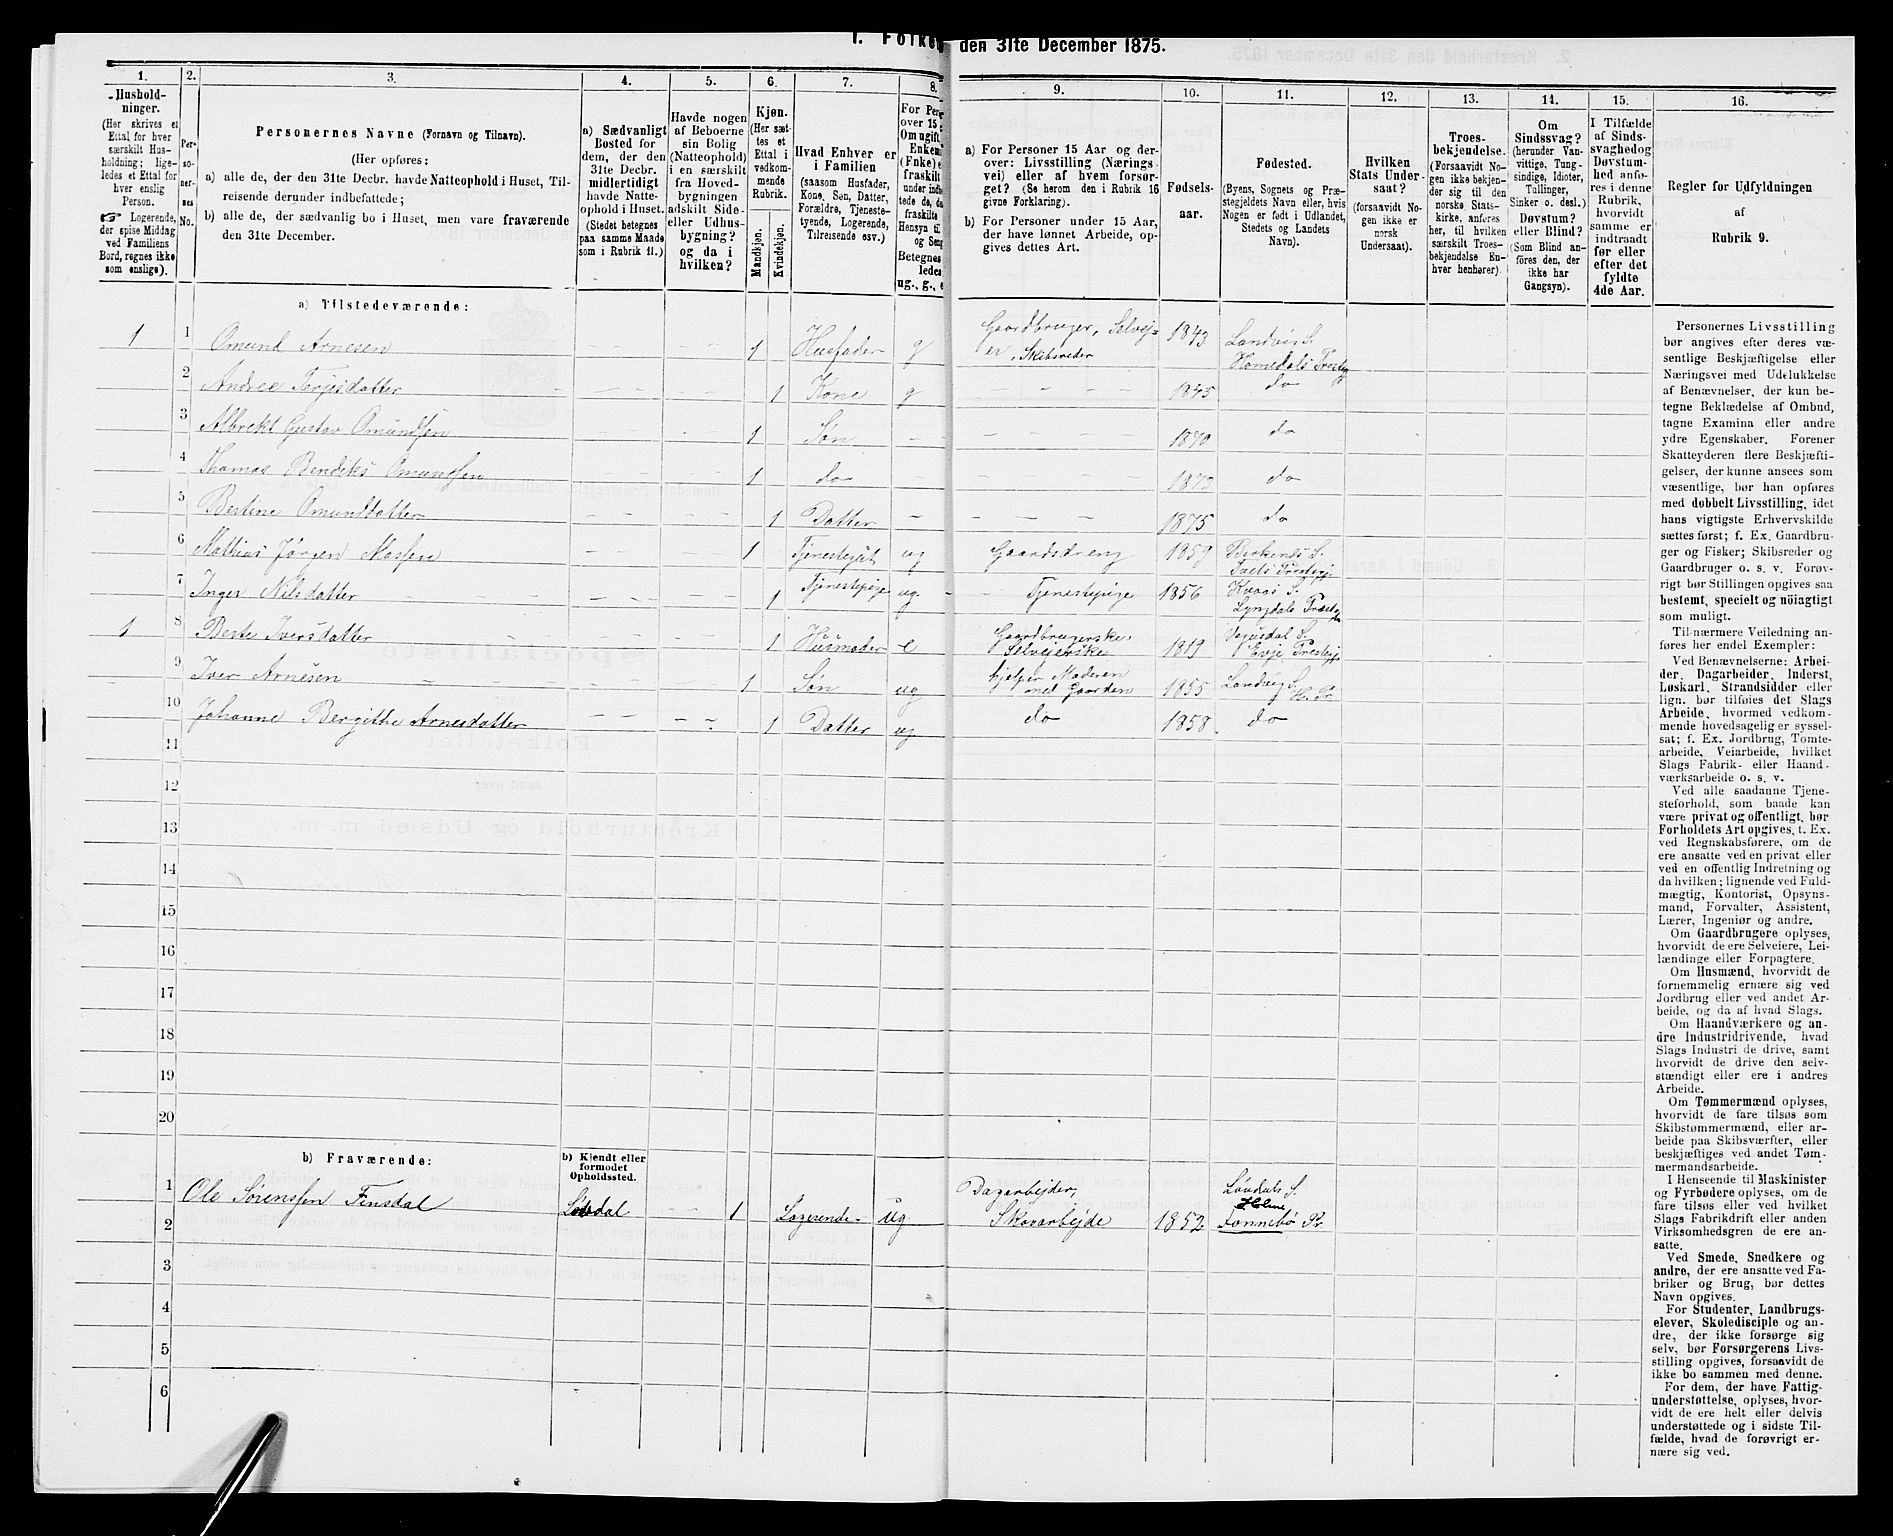 1. Folke
den 31te December 1875.
1. 2. 3. 4. 5. 6. 7. 8. 9. 10. 11. 12. 13. 14. 15. 16.
Hushold-
ninger.
(Her skrives et
Ettal for hver
særskilt Hus-
holdning; lige-
ledes et Ettal for
hver enslig
Person.
☞ Logerende,
der spise Middag
ved Familiens
Bord, regnes ikke
som enslige).
Per-
so-
ner-
nes
No.
Personernes Navne (Fornavn og Tilnavn).
(Her opføres:
a) alle de, der den 31te Decbr. havde Natteophold i Huset, Til-
reisende derunder indbefattede;
b) alle de, der sædvanlig bo i Huset, men vare fraværende
den 31te December.
a) Sædvanligt
Bosted for
dem, der den
31te Decbr.
midlertidigt
havde Natte-
ophold i Huset.
(Stedet betegnes
paa samme Maade
som i Rubrik 11.)
Havde nogen
af Beboerne
sin Bolig
(Natteophold)
i en særskilt
fra Hoved-
bygningen
adskilt Side-
eller Udhus-
bygning?
og da i
hvilken?
Kjøn.
(Her sæt-
tes et
Ettal i
vedkom-
mende
Rubrik.
Mandkjøn.
Kvindekjøn.
Hvad Enhver er
i Familien
(saasom Husfader,
Kone, Søn, Datter,
Forældre, Tjeneste-
tyende, Logerende,
Tilreisende osv.)
For Per
over 15
Om ugift
Enken
(Fnke) e
fraskilt
under ind
tede de, d
fraskilte
Hensyn til
og Seng
Betegnes
ledes
ug., g., e
a) For Personer 15 Aar og der-
over: Livsstilling (Nærings-
vei) eller af hvem forsør-
get? (Se herom den i Rubrik 16
givne Forklaring).
b) For Personer under 15 Aar,
der have lønnet Arbeide, op-
gives dettes Art.
Fødsels-
aar.
Fødested.
(Byens, Sognets og Præ-
stegjeldets Navn eller, hvis
Nogen er født i Udlandet,
Stedets og Landets
Navn).
Hvilken
Stats Under-
saat?
(forsaavidt No-
gen ikke er
norsk
Undersaat).
Troes-
bekjendelse.
(Forsaavidt No-
gen ikke bekjen-
der sig til den
norske Stats-
kirke, anføres
her, til hvilken
særskilt Troes-
bekjendelse En-
hver henhører).
Om
Sindssvag?
(herunder Van-
vittige, Tung-
sindige, Idioter,
Tullinger,
Sinker o. desl.)
Døvstum?
eller Blind?
(Som Blind an-
føres den, der
ikke har
Gangsyn).
I Tilfælde
af Sinds-
svaghed og
Døvstum-
hed anfø-
res i denne
Rubrik,
hvorvidt
samme er
indtraadt
før eller
efter det
fyldte
4de Aar.
Regler for Udfyldningen
af
Rubrik 9.
a) Tilstedeværende:
1 1 Omund Arnesen - - 1 Husfader g Gaardbruger, Selvej-
er, Skibsreder 1843 Landvig S.
Homedals Prestegj
2 Andrea Terjesdatter - - 1 Kone g - - - 1845 do
3 Albrekt Gustav Omundsen - - 1 Søn - - - - 1870 do
4 Thomas Bendiks Omundsen - - 1 do - - - - 1873 do
5 Bertine Omundsdatter - - 1 Datter - - - - 1875 do
6 Mathias Jørgen Moslen - - 1 Tjenestegut ug Gaardsdreng 1859 Birkenes S.
Prestegj
7 Inger Nilsdatter - - 1 Tjenestepige ug. - Tjenestepige 1856 Kvaas S.
Lyngdals Prestegj
1 8 Berte Iversdatter - - 1 Husmoder e Gaardbrugerske,
Selveierske 1819 Vegusdal S.
Evje Prestegj
9 Iver Arnesen - - 1 Søn ug hjelper Moderen
med Gaarden 1855 Landvig S.
H. Pr
10 Johanne Bergithe Arnesdatter - - 1 Datter ug do 1858. do
11
12
13
14
15
16
17
18
19
20
b) Fraværende:
b) Kjendt eller
formodet
Opholdssted.
1 Ole Sørenssen Finsdal - 1 Logerende ug Dagarbejder,
Skovarbejde 1852 S.
Holme
Pr.
2
3
4
5
6
Personernes Livsstilling
bør angives efter deres væ-
sentlige Beskjæftigelse eller
Næringsvei med Udelukkelse
af Benævnelser, der kun be-
tegne Beklædelse af Ombud,
tagne Examina eller andre
ydre Egenskaber. Forener
Skatteyderen flere Beskjæfti-
gelser, der kunne ansees som
væsentlige, bør han opføres
med dobbelt Livsstilling, idet
hans vigtigste Erhvervskilde
sættes først; f. Ex. Gaardbru-
ger og Fisker; Skibsreder og
Gaardbruger o. s. v. Forøv-
rigt bør Stillingen opgives saa
bestemt, specielt og nöiagtigt
som muligt.
Til nærmere Veiledning an-
føres her endel Exempler:
Ved Benævnelserne: Arbei-
der, Dagarbeider, Inderst,
Løskarl, Strandsidder eller
lign. bør tilføies det Slags
Arbeide, hvormed vedkom-
mende hovedsagelig er syssel-
sat; f. Ex. Jordbrug, Tomte-
arbeide, Veiarbeide, hvilket
Slags Fabrik- eller Haand-
værksarbeide o. s. v.
Ved alle saadanne Tjene-
steforhold, som baade kan
være privat og offentligt, bør
Forholdets Art opgives, t. Ex.
ved Regnskabsførere, om de
ere ansatte ved en privat eller
ved en offentlig Indretning og
da hvilken; lignende ved Fuld-
mægtig, Kontorist, Opsyns-
mand, Forvalter, Assistent,
Lærer, Ingeniør og andre.
Om Gaardbrugere oplyses,
hvorvidt de ere Selveiere, Lei-
lændinge eller Forpagtere.
Om Husmænd, hvorvidt de
fornemmelig ernære sig ved
Jordbrug eller ved andet Ar-
beide, og da af hvad Slags.
Om Haandværkere og an-
dre Industridrivende, hvad
Slags Industri de drive, samt
hvorvidt de drive den selv-
stændigt eller ere i andres
Arbeide.
Om Tømmermænd oplyses,
hvorvidt de fare tilsøs som
Skibstømmermænd, eller ar-
beide paa Skibsværfter, eller
beskjæftiges ved andet Tøm-
mermandsarbeide.
I Henseende til Maskinister
og Fyrbødere oplyses, om de
fare tilsøs eller ved hvilket
Slags Fabrikdrift eller anden
Virksomhedsgren de ere an-
satte.
Ved Smede, Snedkere og
andre, der ere ansatte ved Fa-
briker og Brug, bør dettes
Navn opgives.
For Studenter, Landbrugs-
elever, Skoledisciple og an-
dre, der ikke forsørge sig
selv, bør Forsørgerens Livs-
stilling opgives, forsaavidt de
ikke bo sammen med denne.
For dem, der have Fattig-
understøttelse, oplyses, hvor-
vidt de ere helt eller delvis
understøttede og i sidste Til-
fælde, hvad de forøvrigt er-
nære sig ved.